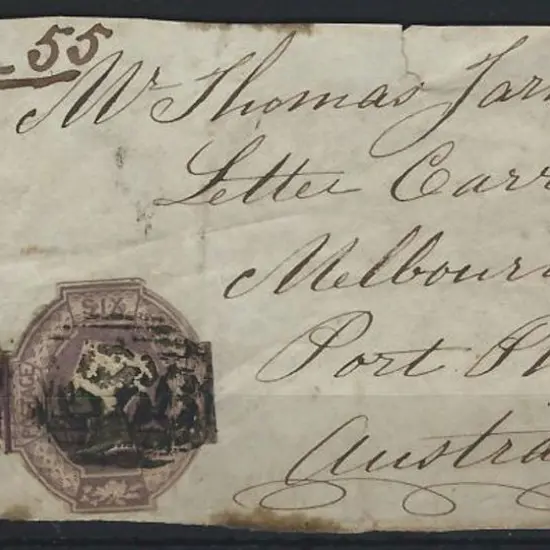 55
Mr Thomas Jar
Letter Carr
Melbour
Port P
Austra
SIX
PENCE